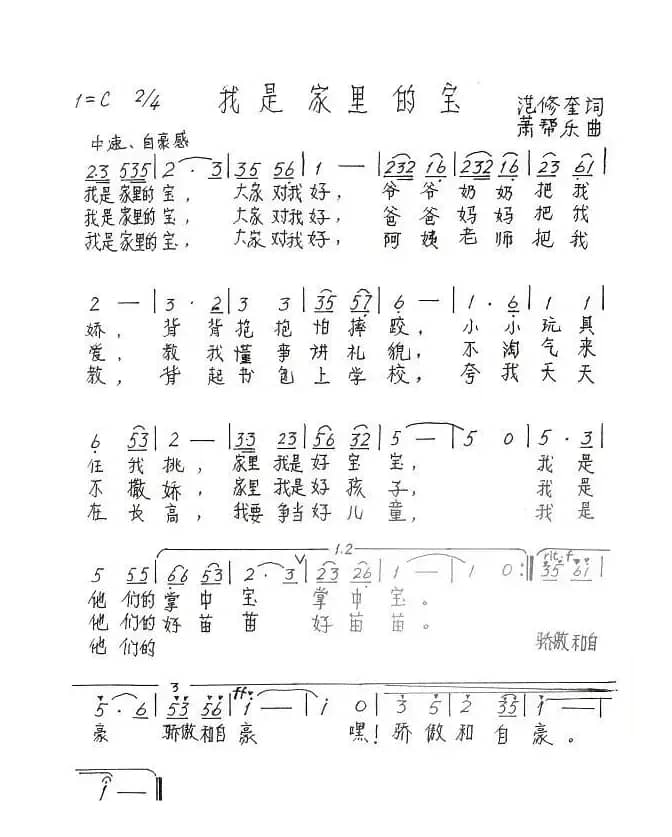 1=C 2/4 我是家里的宝 范修奎词
萧帮乐曲
中速、自豪感
23 535 | 2 · 3 | 35 56 | 1 — | 232 16 | 232 16 | 23 61 |
我是家里的宝， 大家对我好， 爷爷奶奶把我
我是家里的宝， 大家对我好， 爸爸妈妈把我
我是家里的宝， 大家对我好， 阿姨老师把我
2 — | 3 · 2 | 3 3 | 35 57 | 6 — | 1 · 6 | 1 1 |
娇， 背背抱抱怕摔跤， 小小玩具
爱， 教我懂事讲礼貌， 不淘气来
教， 背起书包上学校， 夸我天天
6 53 | 2 — | 33 23 | 56 32 | 5 — | 5 0 | 5 · 3 |
任我挑， 家里我是好宝宝， 我是
不撒娇， 家里我是好孩子， 我是
在长高， 我要争当好儿童， 我是
1.2
rit. f
5 55 | 66 53 | 2 · 3 | 23 26 | 1 — | 1 0 :‖ 35 61 |
他们的掌中宝 掌中宝。
他们的好苗苗 好苗苗。
他们的 骄傲和自
3
ff
5 · 6 | 53 56 | i — | i 0 | 3 5 | 2 35 | i — |
豪 骄傲和自豪 嘿！骄傲和自豪。
i — ‖